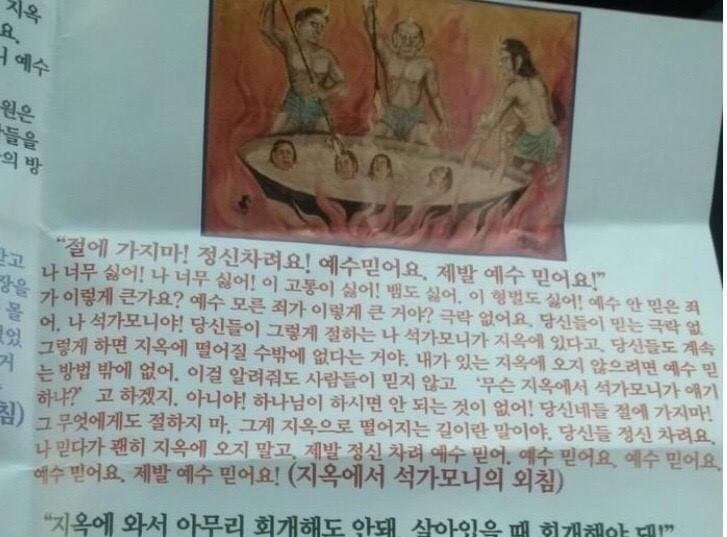 지옥
요.
예수
원은
들을
의 방
"절에 가지마! 정신차려요! 예수믿어요, 제발 예수 믿어요!"
나 너무 싫어! 나 너무 싫어! 이 고통이 싫어! 뱀도 싫어, 이 형벌도 싫어! 예수 안 믿은 죄
가 이렇게 큰가요? 예수 모른 죄가 이렇게 큰 거야? 극락 없어요. 당신들이 믿는 극락 없
어, 나 석가모니야! 당신들이 그렇게 절하는 나 석가모니가 지옥에 있다고. 당신들도 계속
그렇게 하면 지옥에 떨어질 수밖에 없다는 거야. 내가 있는 지옥에 오지 않으려면 예수 믿
는 방법 밖에 없어. 이걸 알려줘도 사람들이 믿지 않고 '무슨 지옥에서 석가모니가 얘기
하냐?' 고 하겠지. 아니야! 하나님이 하시면 안 되는 것이 없어! 당신네들 절에 가지마!
그 무엇에게도 절하지 마. 그게 지옥으로 떨어지는 길이란 말이야. 당신들 정신 차려요.
나 믿다가 괜히 지옥에 오지 말고, 제발 정신 차려 예수 믿어. 예수 믿어요, 예수 믿어요,
예수 믿어요, 제발 예수 믿어요! (지옥에서 석가모니의 외침)
받고
장을
몰
었
거
침)
"지옥에 와서 아무리 회개해도 안돼, 살아있을 때 회개해야 돼!"